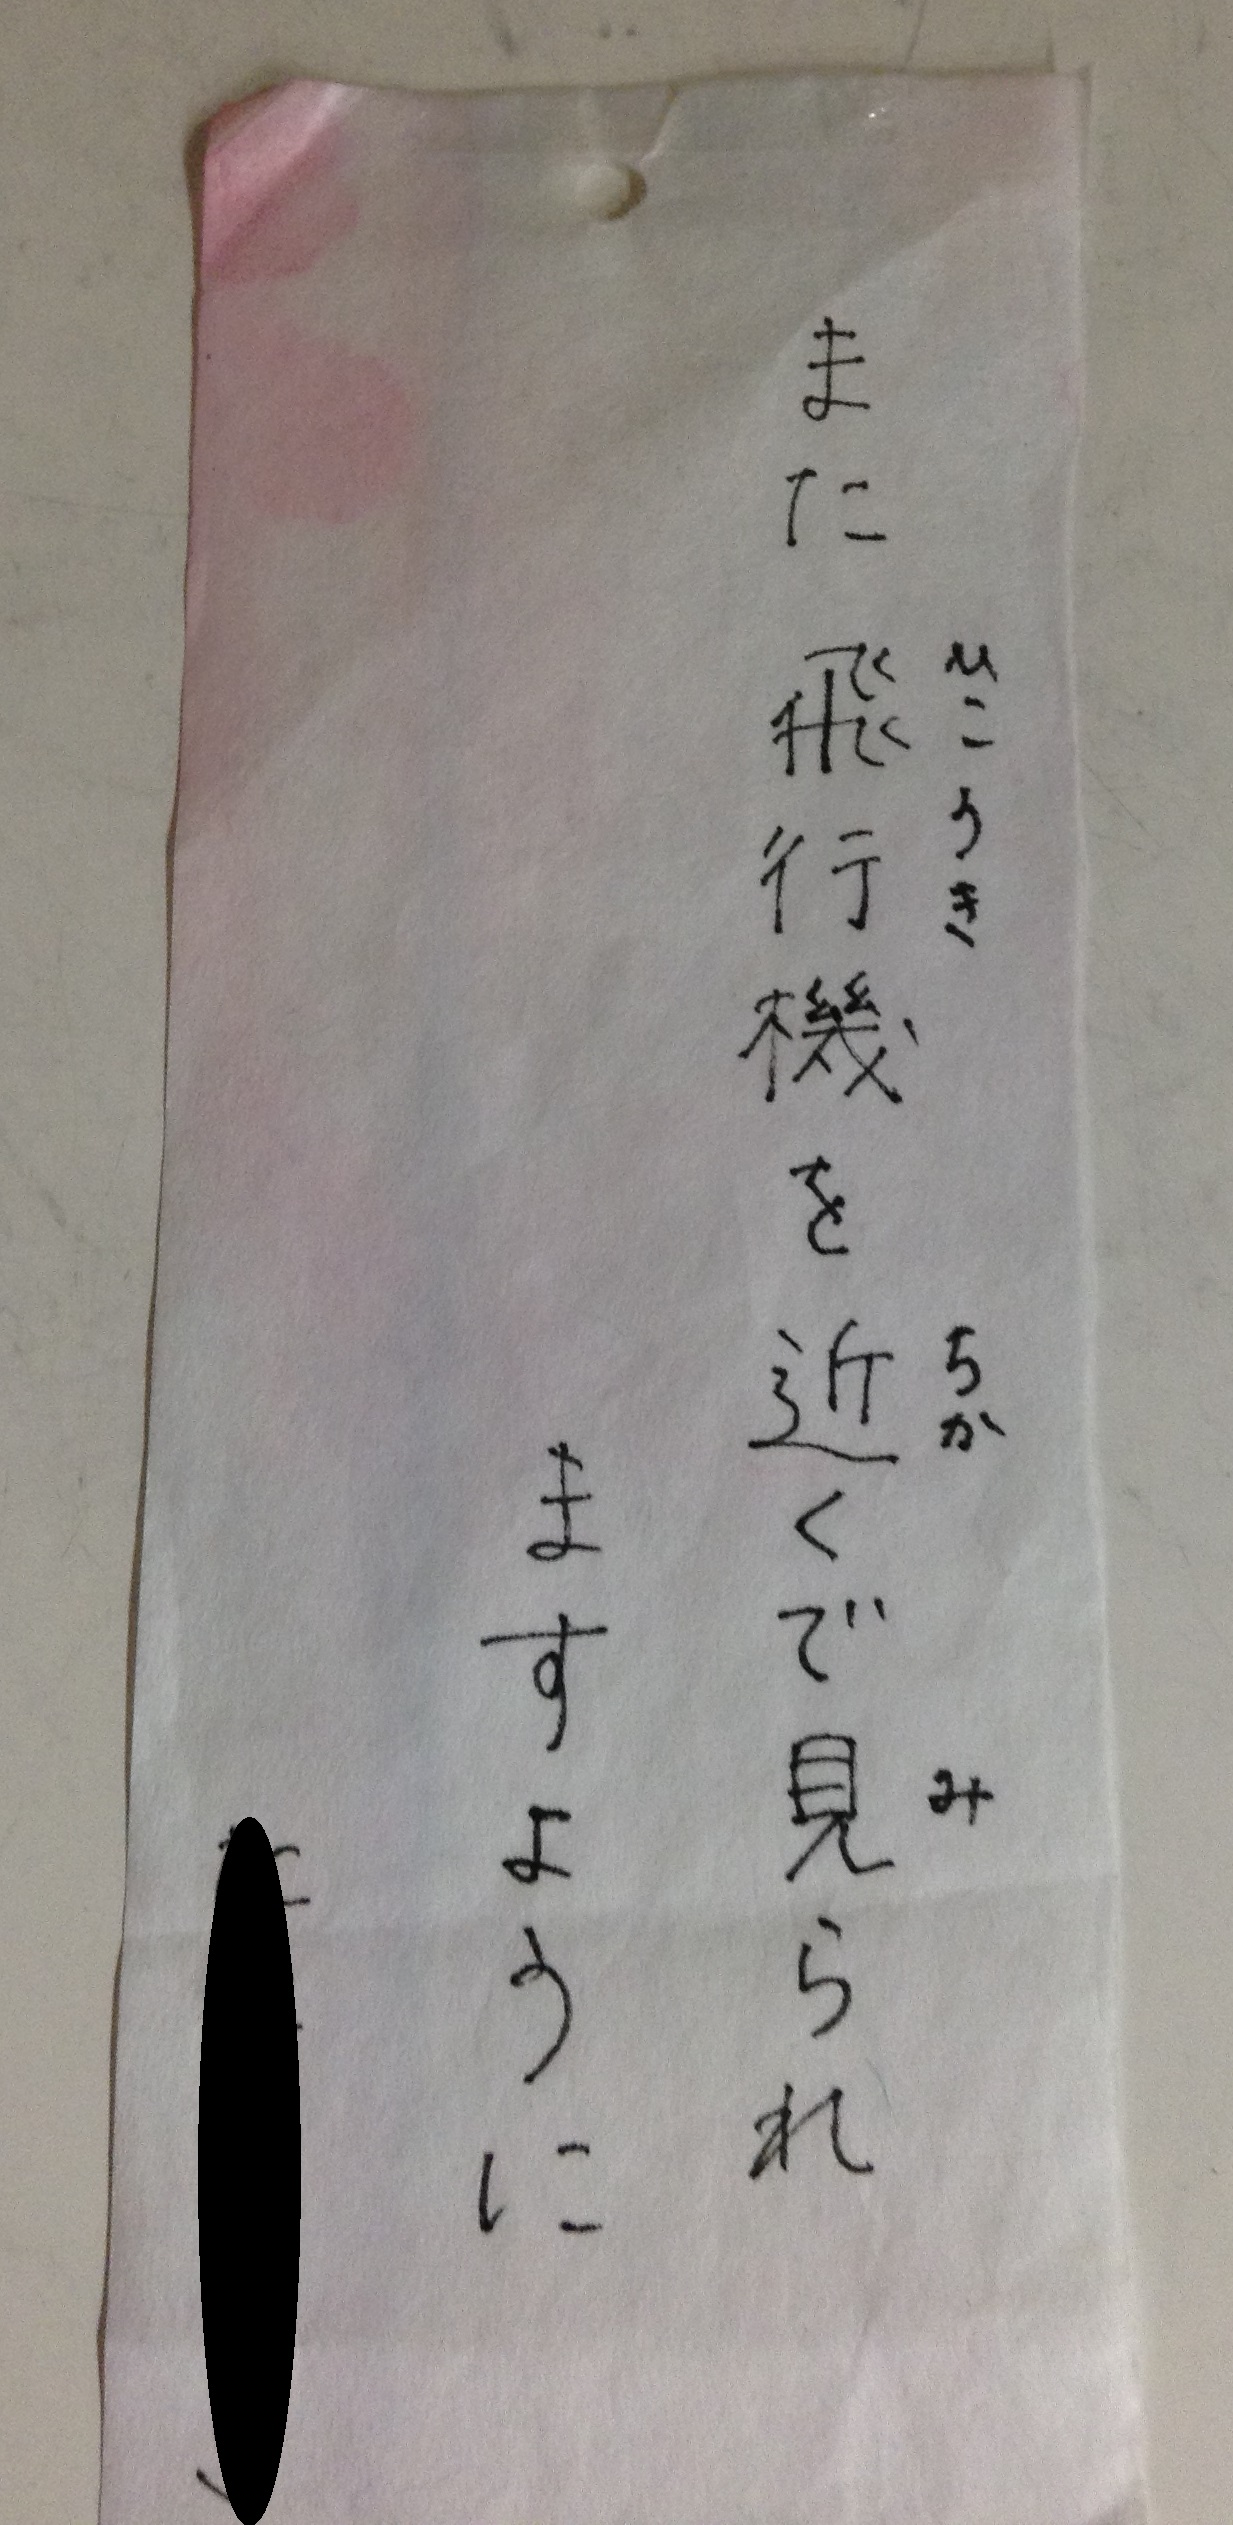 また飛行機を近くで見られ
ひこうき ちか み
ますように